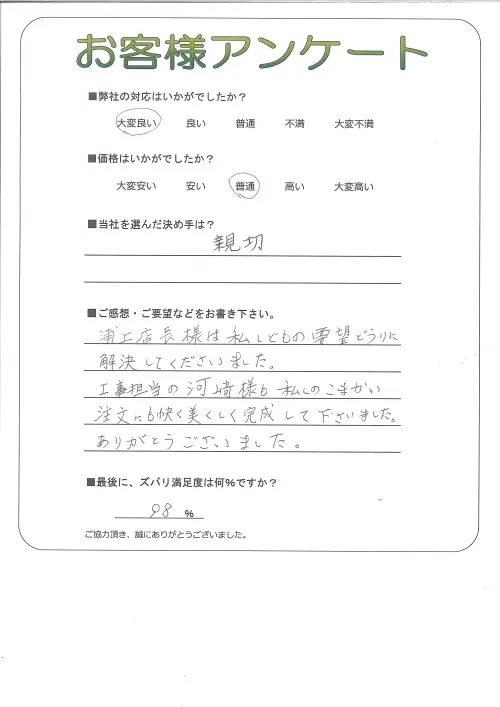 お客様アンケート
■弊社の対応はいかがでしたか?
大変良い 良い 普通 不満 大変不満
■価格はいかがでしたか?
大変安い 安い 普通 高い 大変高い
■当社を選んだ決め手は?
親切
■ご感想・ご要望などをお書き下さい。
浦上店長様は私しどもの要望どうりに
解決してくださいました。
工事担当の河崎様も私しのこまかい
注文にも快く美くしく完成して下さいました。
ありがとうございました。
■最後に、ズバリ満足度は何%ですか?
98 %
ご協力頂き、誠にありがとうございました。